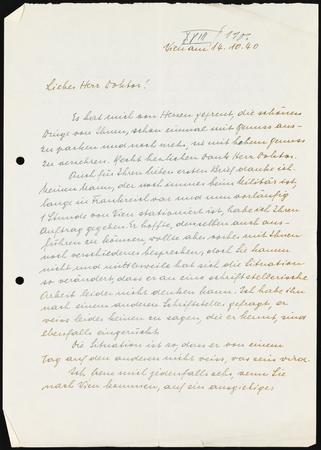 XVIII / 170.
Wien am 14.10.40
Lieber Herr Doktor!
Es hat mich von Herzen gefreut, die schönen
Dinge von Ihnen, schon einmal mit Genuss aus-
zupacken und noch mehr, sie mit hohem Genuss
zu verzehren. Recht herzlichen Dank Herr Doktor.
Auch für Ihren lieben ersten Brief danke ich.
Meinem Mann, der noch immer beim Militär ist,
lange in Frankreich war und nun vorläufig
1 Stunde von Wien stationiert ist, habe ich Ihren
Auftrag gegeben. Er hoffte, denselben auch aus-
führen zu können, wollte aber vorher mit Ihnen
noch verschiedenes besprechen, doch Sie kamen
nicht und mittlerweile hat sich die Situation
so verändert, dass er an eine schriftstellerische
Arbeit leider nicht denken kann. Ich habe ihn
nach einem anderen Schriftsteller gefragt, er
weiss leider keinen zu sagen, die er kennt, sind
ebenfalls eingerückt.
Die Situation ist so, dass er von einem
Tag auf den anderen nicht weiss, was sein wird.
Ich freue mich jedenfalls sehr, wenn Sie
nach Wien kommen, auf ein ausgiebiges